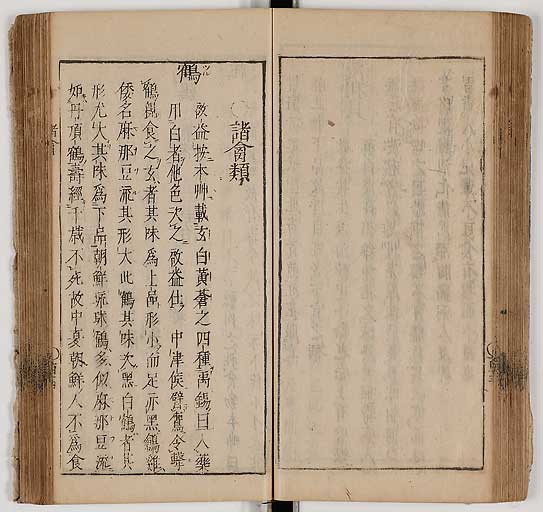 諸禽類
鶴
啟益按本艸載玄白黃蒼之四種禹錫曰入藥
用白者他色次之啟益仕中津侯臂鷹令擊
鶴食之玄者其味為上品形小而足赤黑鶴
倭名麻那豆流其形大此鶴其味次黑白鶴者其
形尤大其味為下品朝鮮琉球鶴多似麻那豆流
丹頂鶴壽經千歲不死故中夏朝鮮人不為食
諸禽